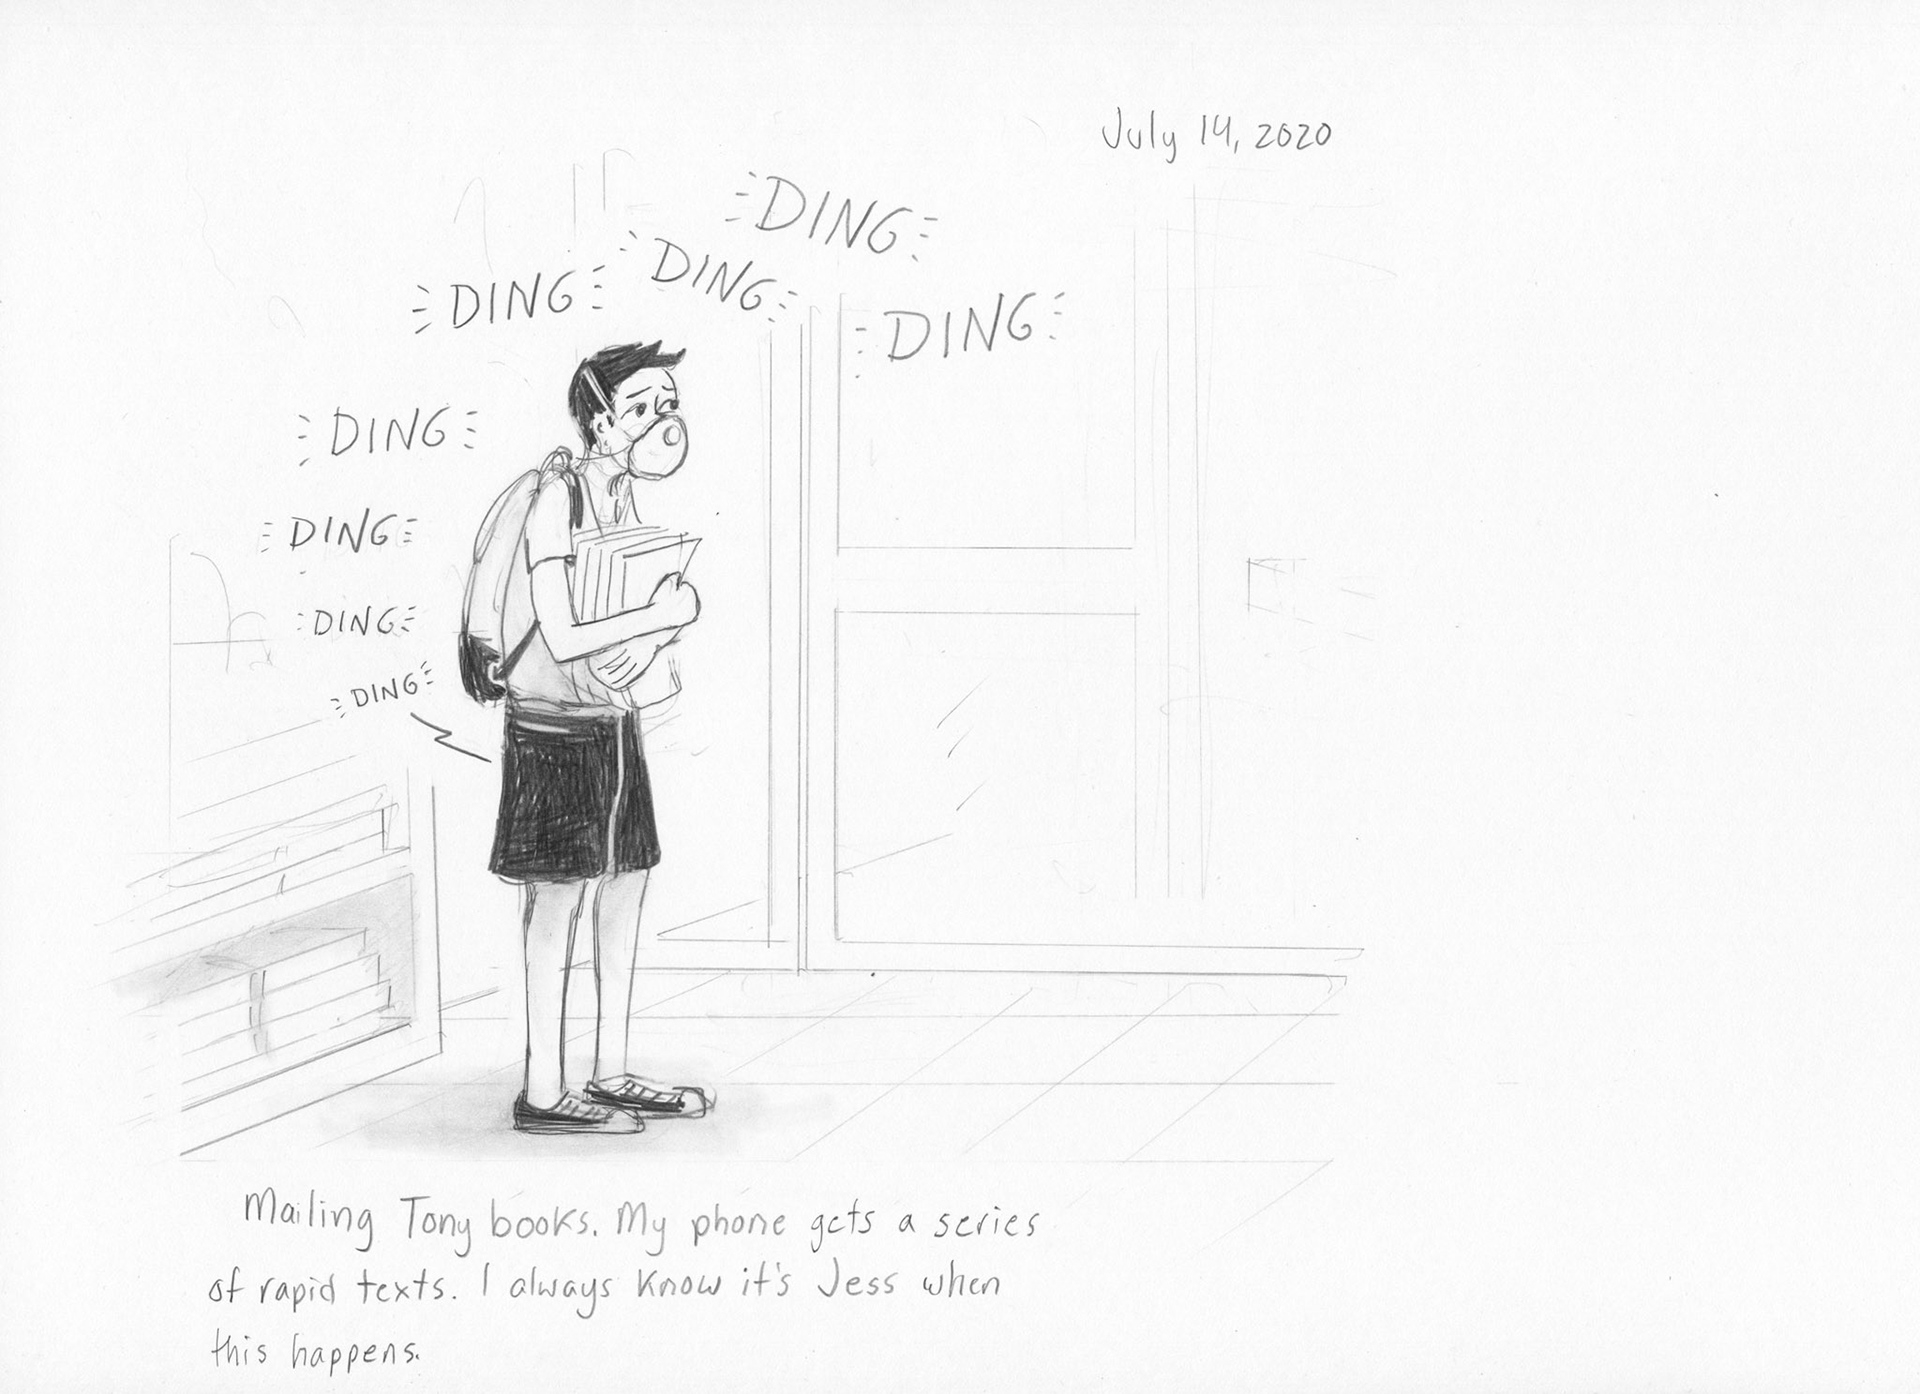 July 14, 2020
DING
DING
DING
DING
DING
DING
DING
DING
Mailing Tony books. My phone gets a series
of rapid texts. I always know it's Jess when
this happens.